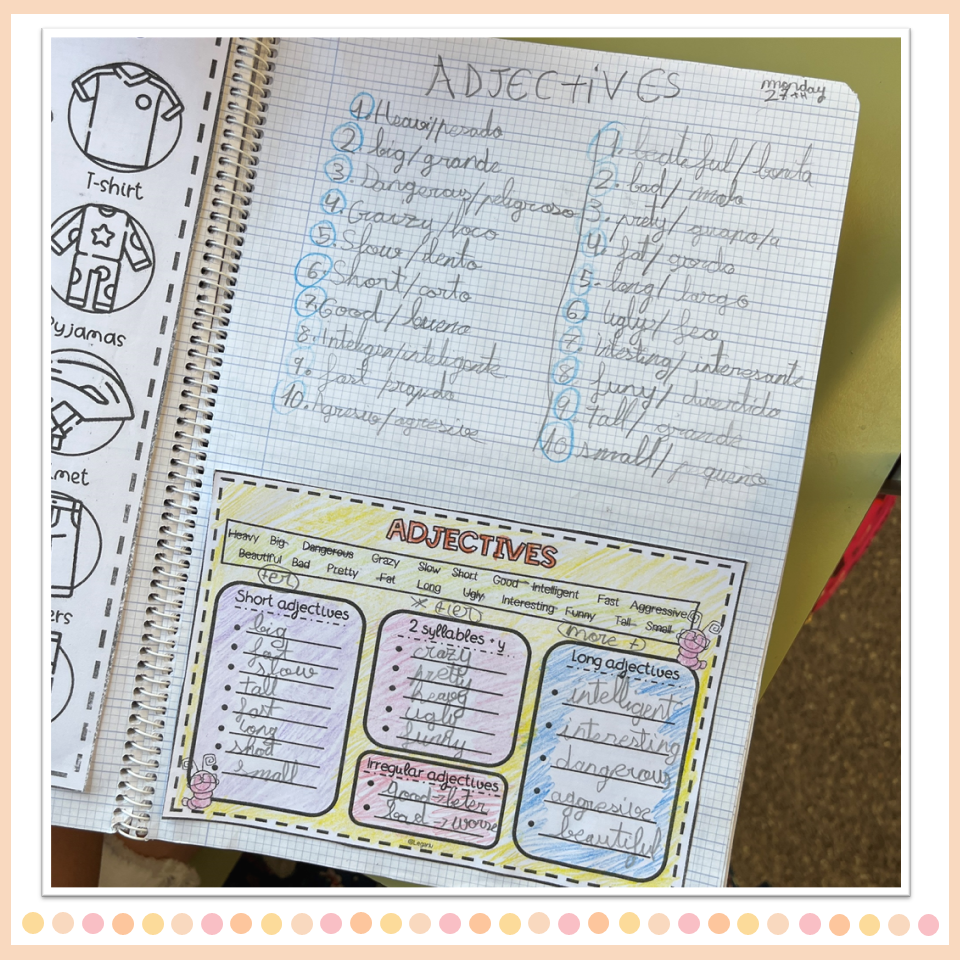 T-shirt
yjamas
met
ers
ADJECTiVES
monday
27TH
1. Heavi/pesado
2. big/grande
3. Dangerous/peligroso
4. Graizy/loco
5. Slow/lento
6. Short/corto
7. Good/bueno
8. Inteligen/inteligente
9. fast
10. Agresiv/agresive
1. beateful/bonita
2. bad/malo
3. prety/guapo/a
4. fat/gordo
5. long/largo
6. Ugly/feo
7. intesting/interesante
8. funy/divertido
9. tall/grande
10. small/pequeño
ADJECTIVES
Heavy Big Dangerous Grazy Slow Short Good Intelligent Fast Aggressive
Beautiful Bad Pretty Fat Long Ugly Interesting Funny Tall Small
+er)
* (ier)
(more +)
Short adjectives
big
fat
slow
tall
fast
long
short
small
2 syllables + y
crazy
pretty
heavy
ugly
funny
Irregular adjectives
good→beter
bad→worse
Long adjectives
intelligent
interesting
dangerous
aggresive
beautiful